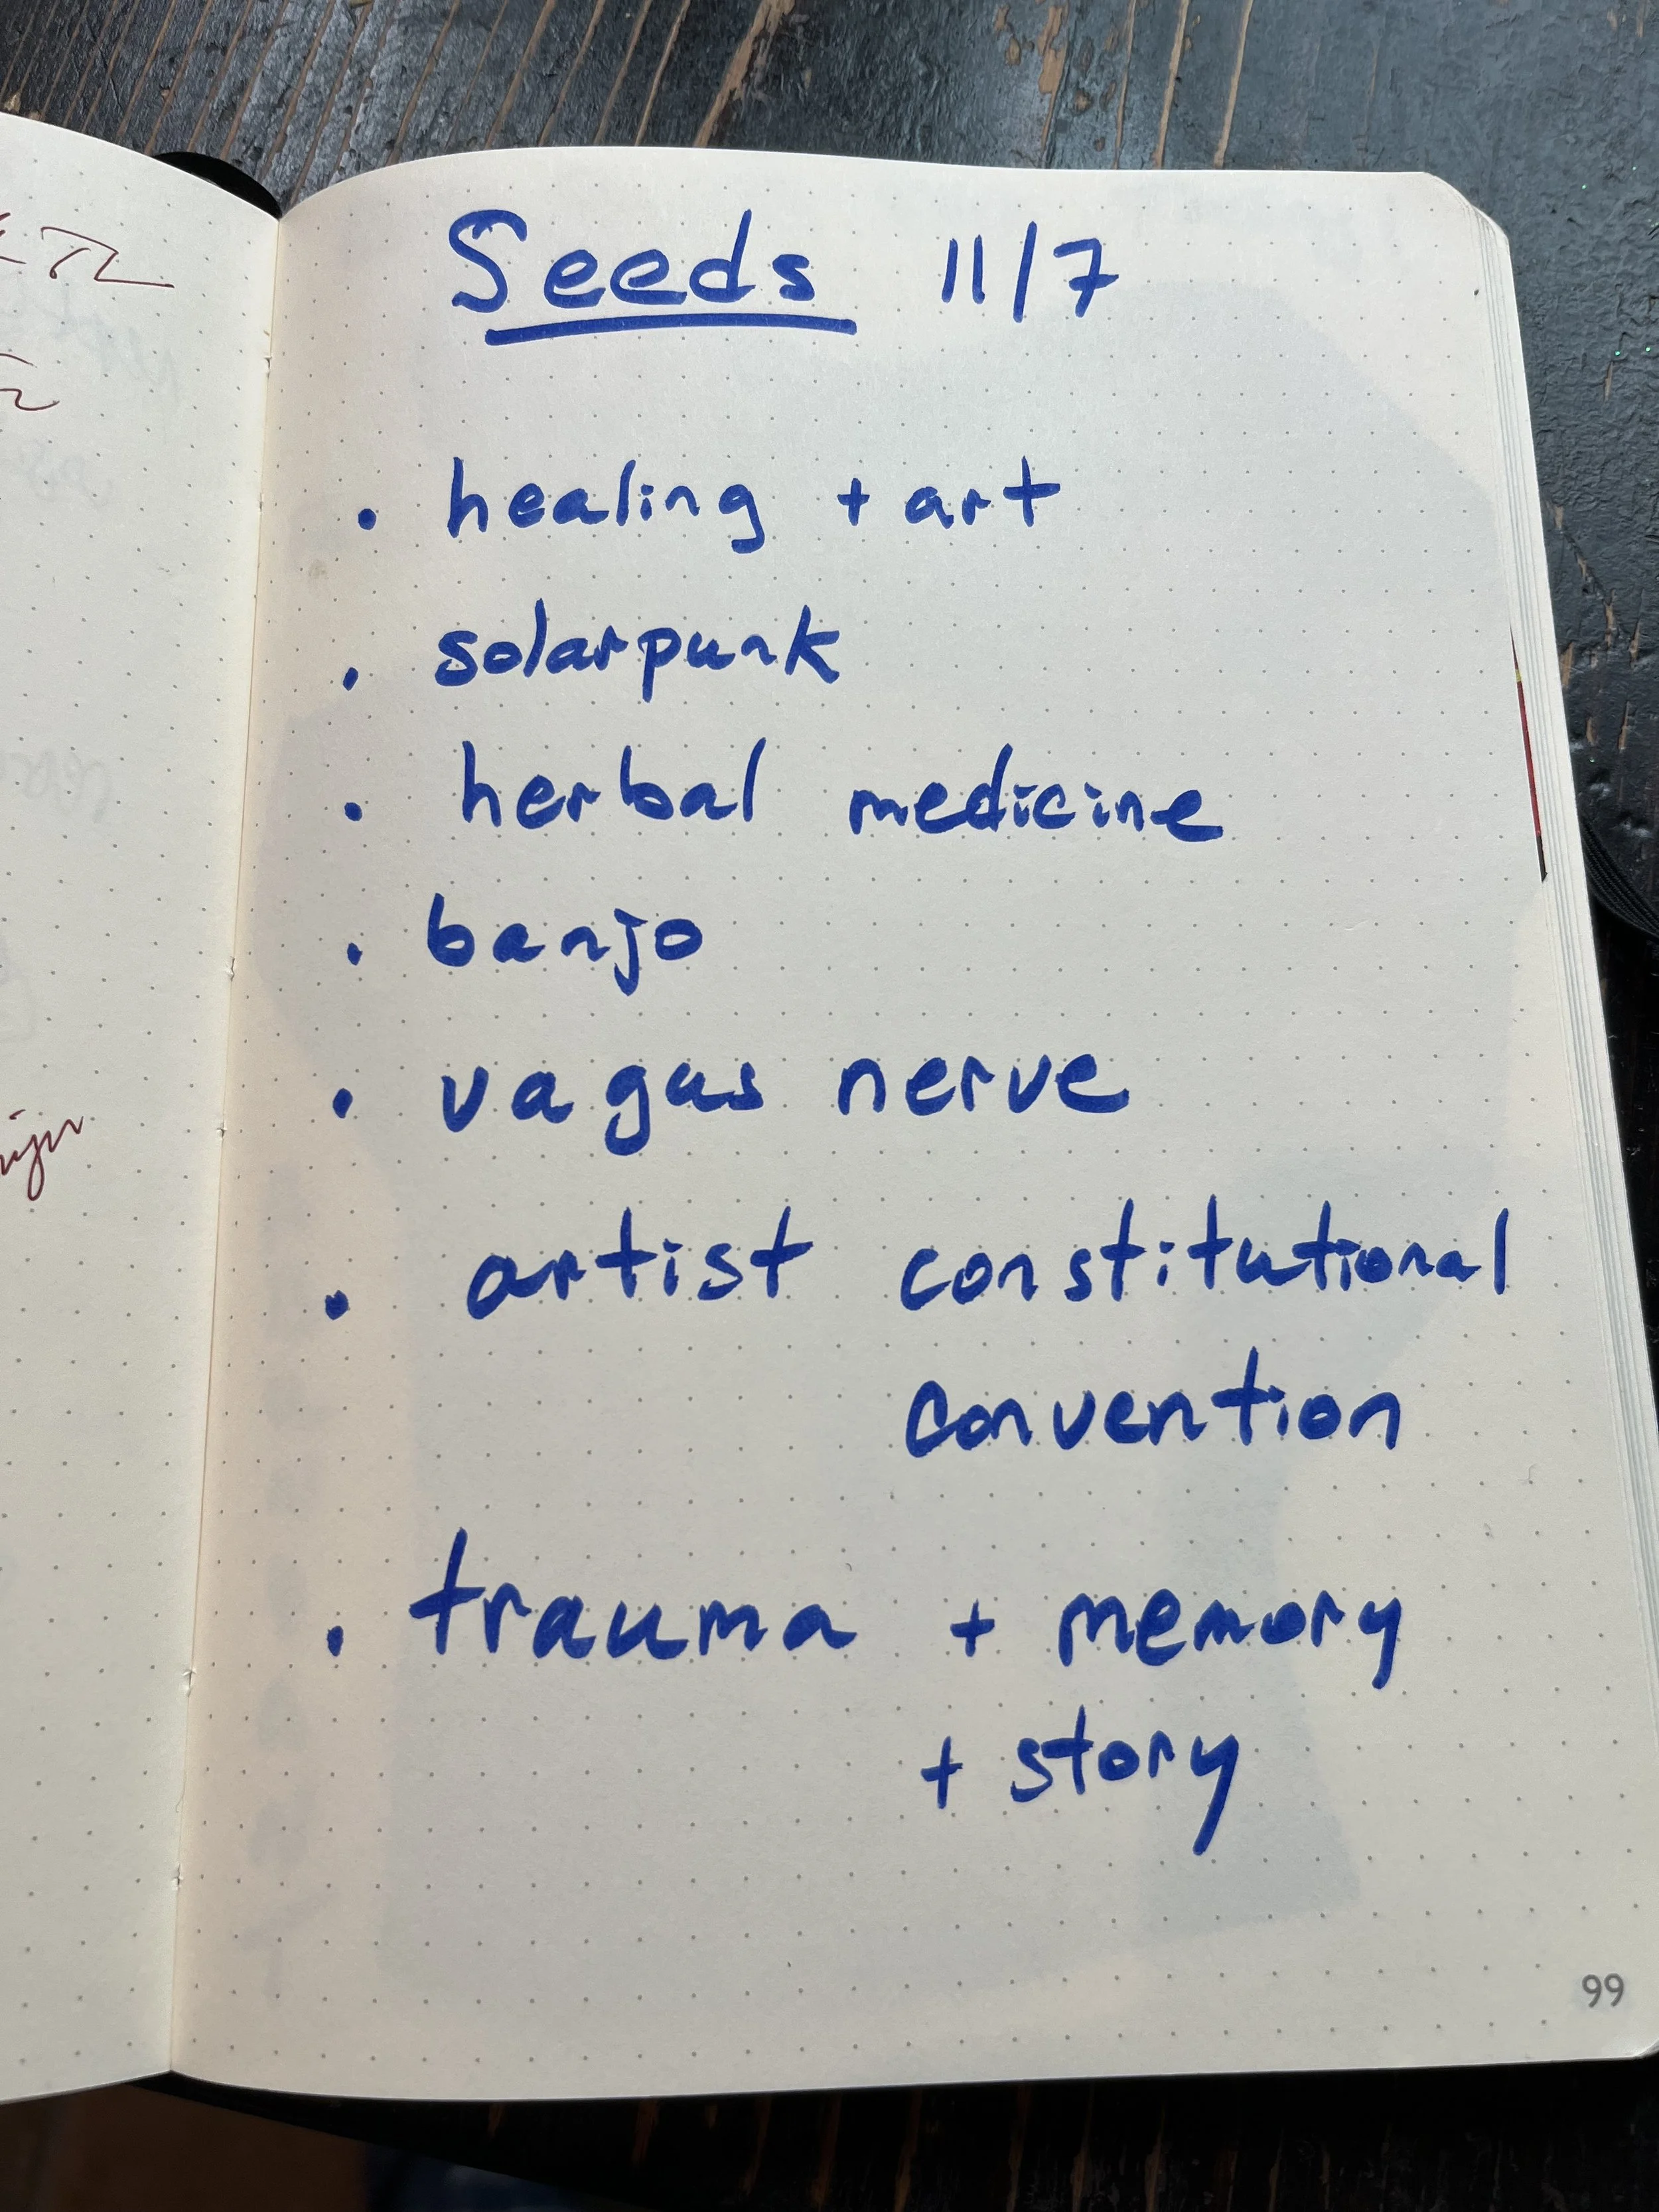 Seeds 11/7
• healing + art
• solarpunk
• herbal medicine
• banjo
• vagus nerve
• artist constitutional
convention
• trauma + memory
+ story
99